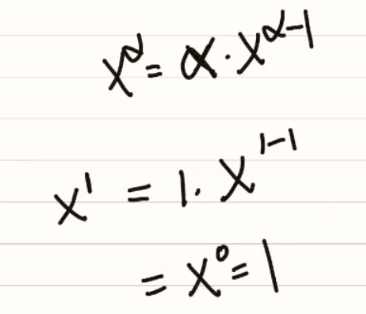 x^α = α · x^(α-1)
x^1 = 1 · x^(1-1)
= x^0 = 1